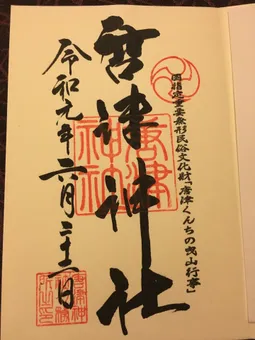 国指定重要無形民俗文化財「唐津くんちの曳山行事」
唐津神社
唐津
神社
令和元年六月二十二日